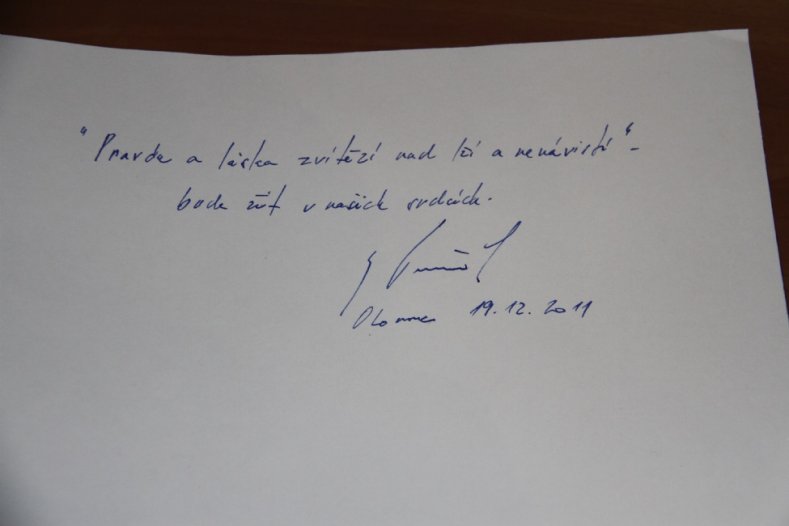 "Pravda a láska zvítězí nad lží a nenávistí" -
bude žít v našich srdcích.
Olomouc 19.12.2011